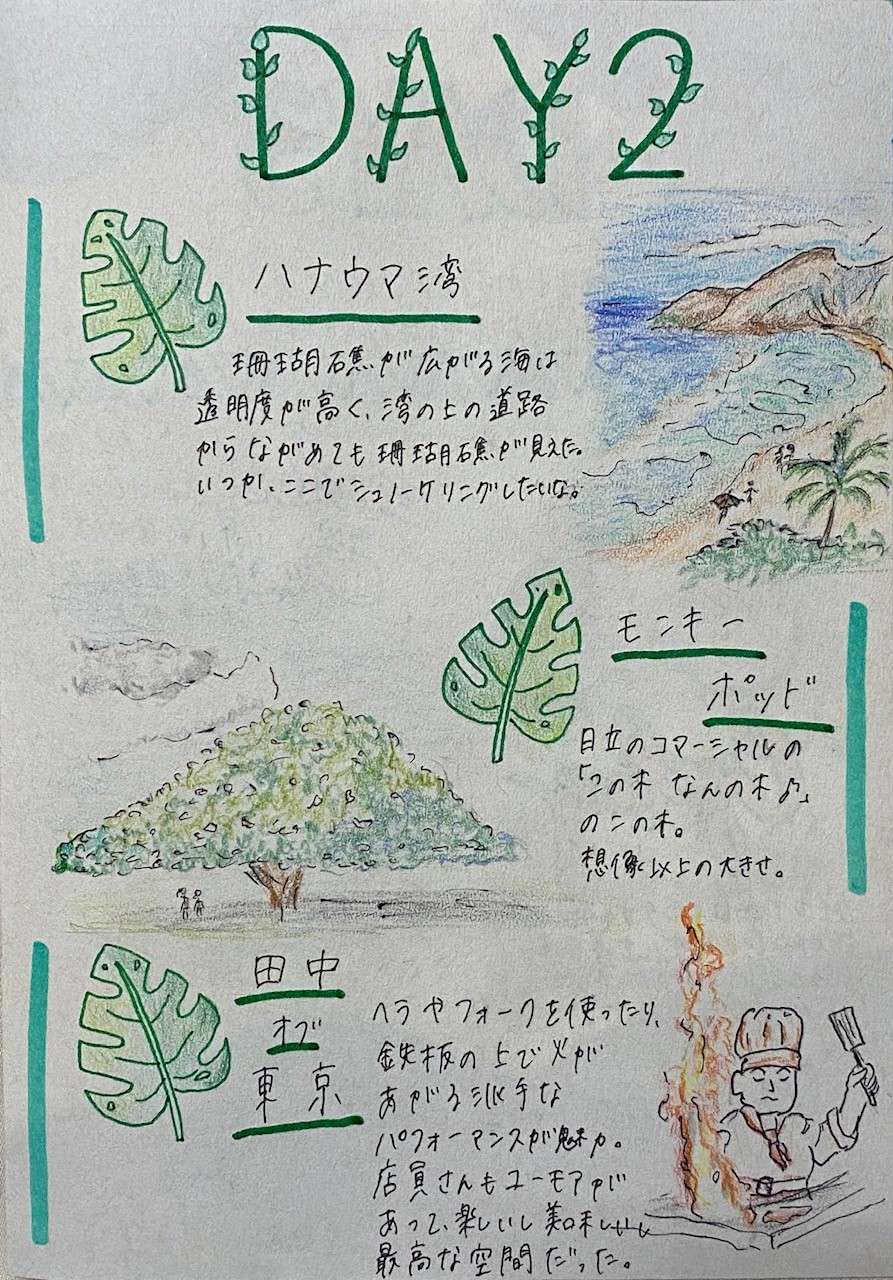 DAY2
ハナウマ湾
珊瑚礁が広がる海は
透明度が高く、湾の上の道路
からながめても珊瑚礁が見えた。
いつか、ここでシュノーケリングしたいな。
モンキー
ポッド
日立のコマーシャルの
「この木 なんの木♪」
のこの木。
想像以上の大きさ。
田中
オブ
東京
ヘラやフォークを使ったり、
鉄板の上で火が
あがる派手な
パフォーマンスが魅力。
店員さんもユーモアが
あって、楽しいし美味しいし
最高な空間だった。